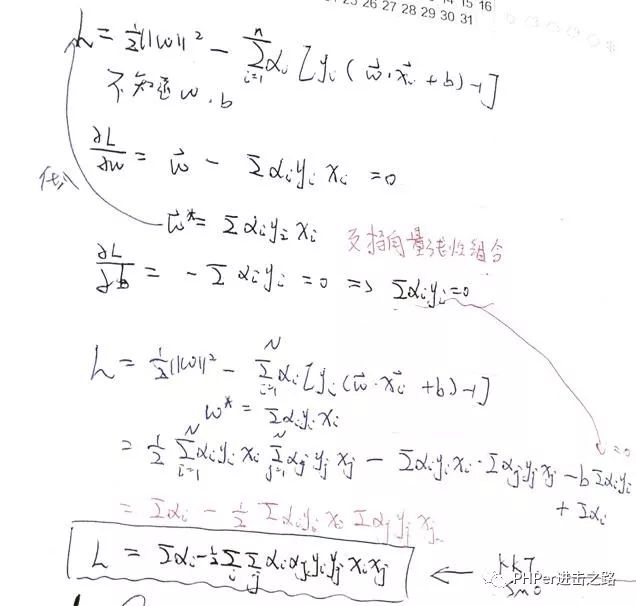 14 15 16
25 26 27 28 29 30 31
L = ½||w||² - Σᵢ₌₁ⁿ αᵢ [yᵢ (w⃗·x⃗ᵢ + b) -1]
不知道 w . b
∂L/∂w = w⃗ - Σαᵢyᵢxᵢ = 0
代入
w⃗* = Σαᵢyᵢxᵢ 支持向量线性组合
∂L/∂b = - Σαᵢyᵢ = 0 => Σαᵢyᵢ=0
L = ½||w||² - Σᵢ₌₁ᴺ αᵢ[yᵢ(w⃗·x⃗ᵢ + b) -1]
w* = Σαᵢyᵢxᵢ
= ½ Σᵢ₌₁ᴺ αᵢyᵢxᵢ Σⱼ₌₁ᴺ αⱼyⱼxⱼ - Σαᵢyᵢxᵢ·Σαⱼyⱼxⱼ - bΣαᵢyᵢ =0
+ Σαᵢ
= Σαᵢ - ½ Σαᵢyᵢxᵢ Σαⱼyⱼxⱼ
L = Σαᵢ-½ΣᵢΣⱼ αᵢαⱼyᵢyⱼxᵢxⱼ ← KKT
PHPer进击之路